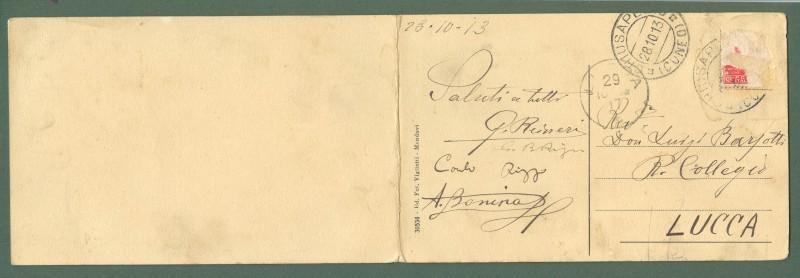 23-10-13
CHIUSAPESIO (CUNEO)
28.10.13
29
Saluti a tutti
G. Rinieri
Carlo Rizzo
A. Bonino
30504 - Ed. Fot. Vigliatti - Mondovì
Rev
Don Luigi Barsotti
R. Collegio
LUCCA